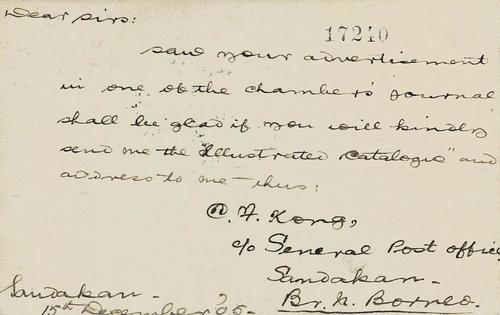 Dear Sirs:
17210
saw your advertisement
in one of the chambers' journal
shall be glad if you will kindly
send me the "Illustrated Catalogue" and
address to me thus:
C. F. Kong,
c/o General Post office
Sandakan -
Br. N. Borneo.
Sandakan -
15th December, '05 -